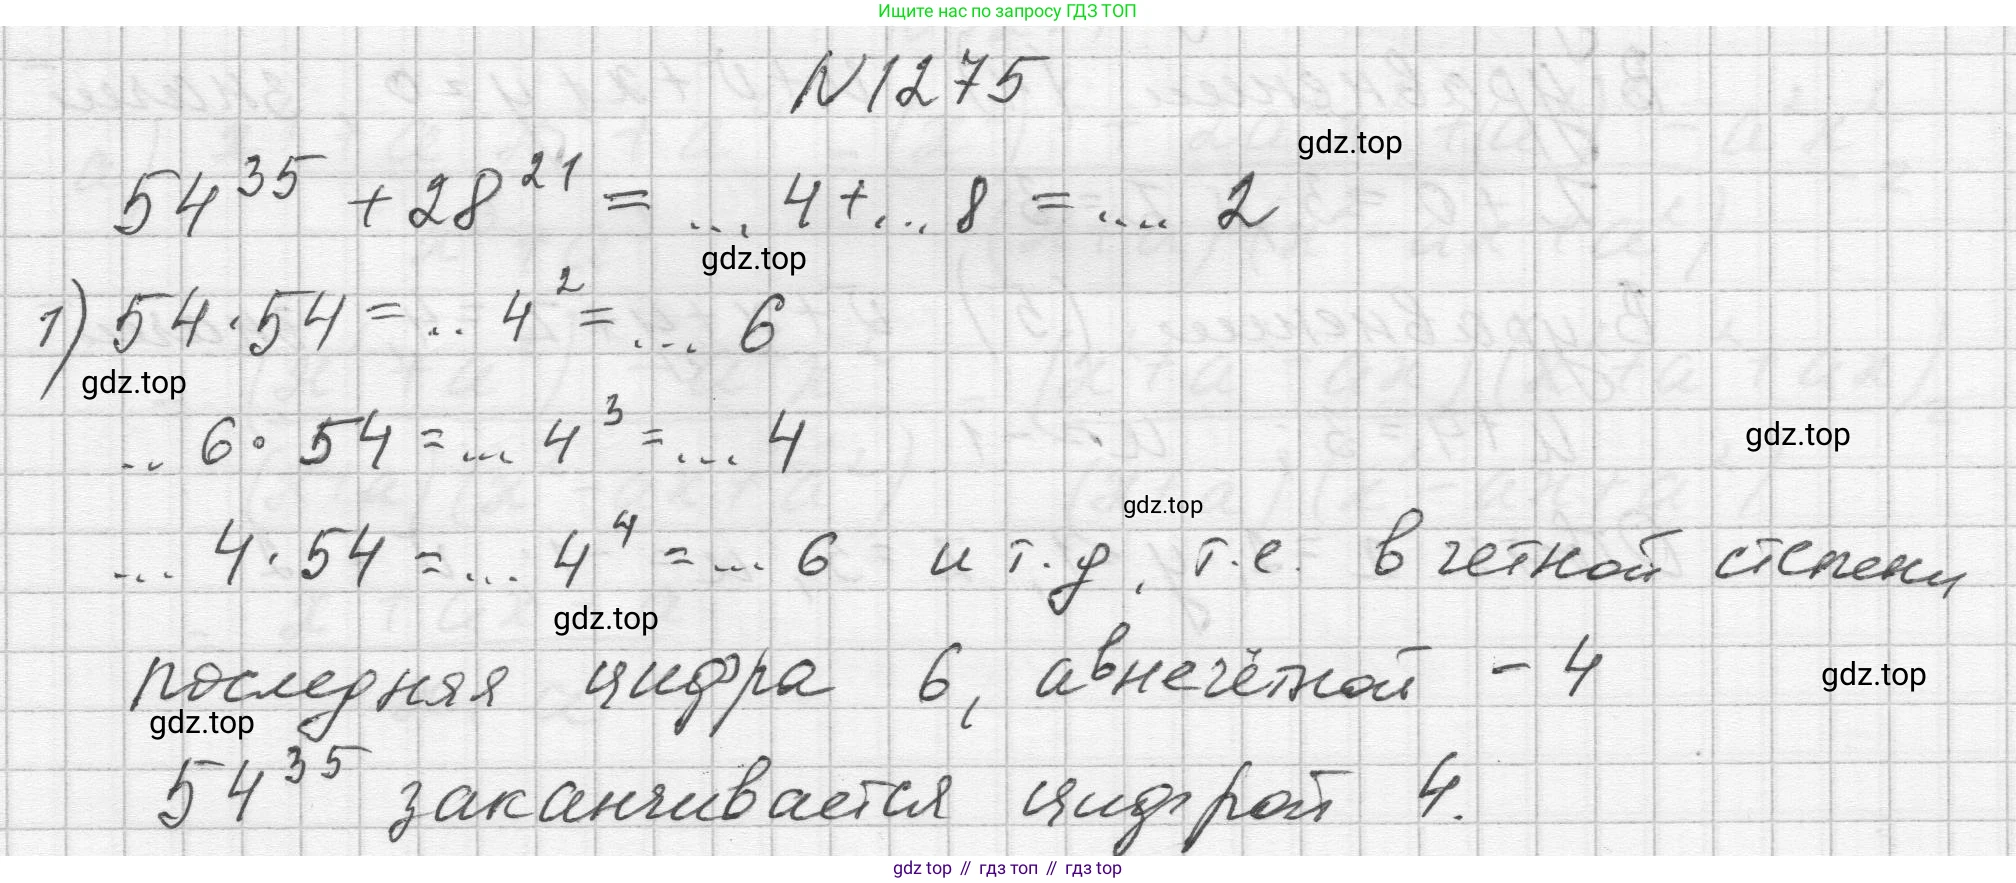 Ищите нас по запросу ГДЗ ТОП
N1275
gdz.top
54^35 + 28^21 = ... 4 + ... 8 = .... 2
gdz.top
1) 54 · 54 = ... 4^2 = ... 6
gdz.top
... 6 · 54 = ... 4^3 = ... 4
gdz.top
gdz.top
... 4 · 54 = ... 4^4 = ... 6 и т.д, т.е. в четной степени
gdz.top
последняя цифра 6, а в нечётной - 4
gdz.top
gdz.top
54^35 заканчивается цифрой 4.
gdz top // гдз топ // гдз top